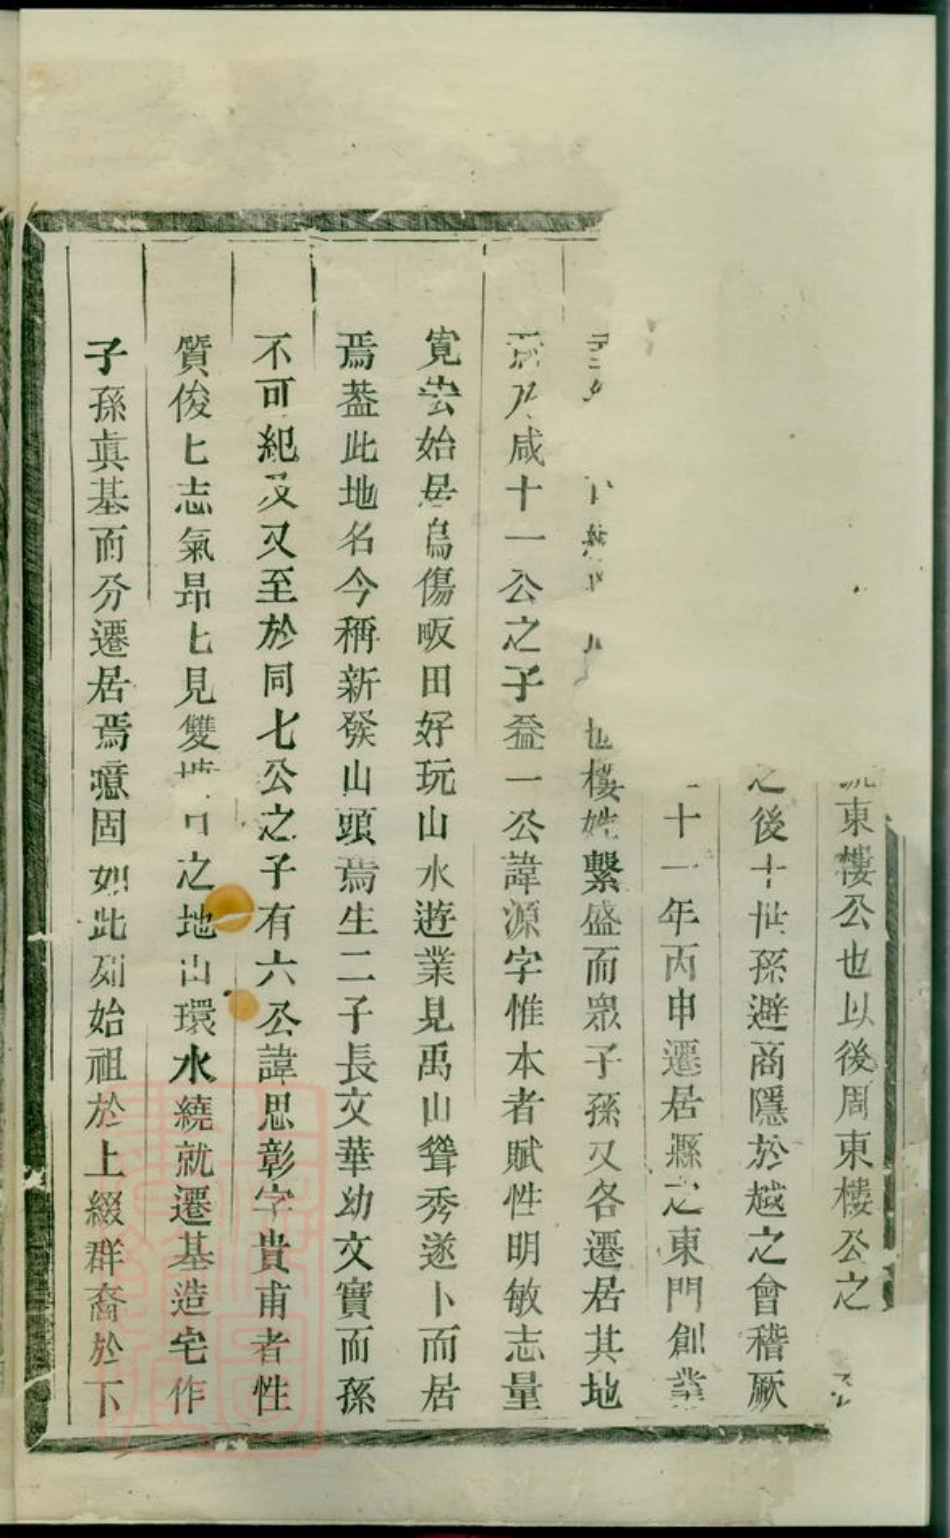 東樓公也以後周東樓公之
之後十世孫避商隱於越之會稽厥
十一年丙申遷居縣之東門創業
樓姓繫盛而衆子孫又各遷居其地
焉乃咸十一公之子益一公諱源字惟本者賦性明敏志量
寬宏始居烏傷畈田好玩山水遊業見禹山聳秀遂卜而居
焉葢此地名今稱新發山頭焉生二子長文華幼文實而孫
不可紀及又至於同七公之子有六公諱思彰字貴甫者性
質俊匕志氣昻匕見雙之地山環水繞就遷基造宅作
子孫眞基而分遷居焉噫固如此列始祖於上綴群裔於下